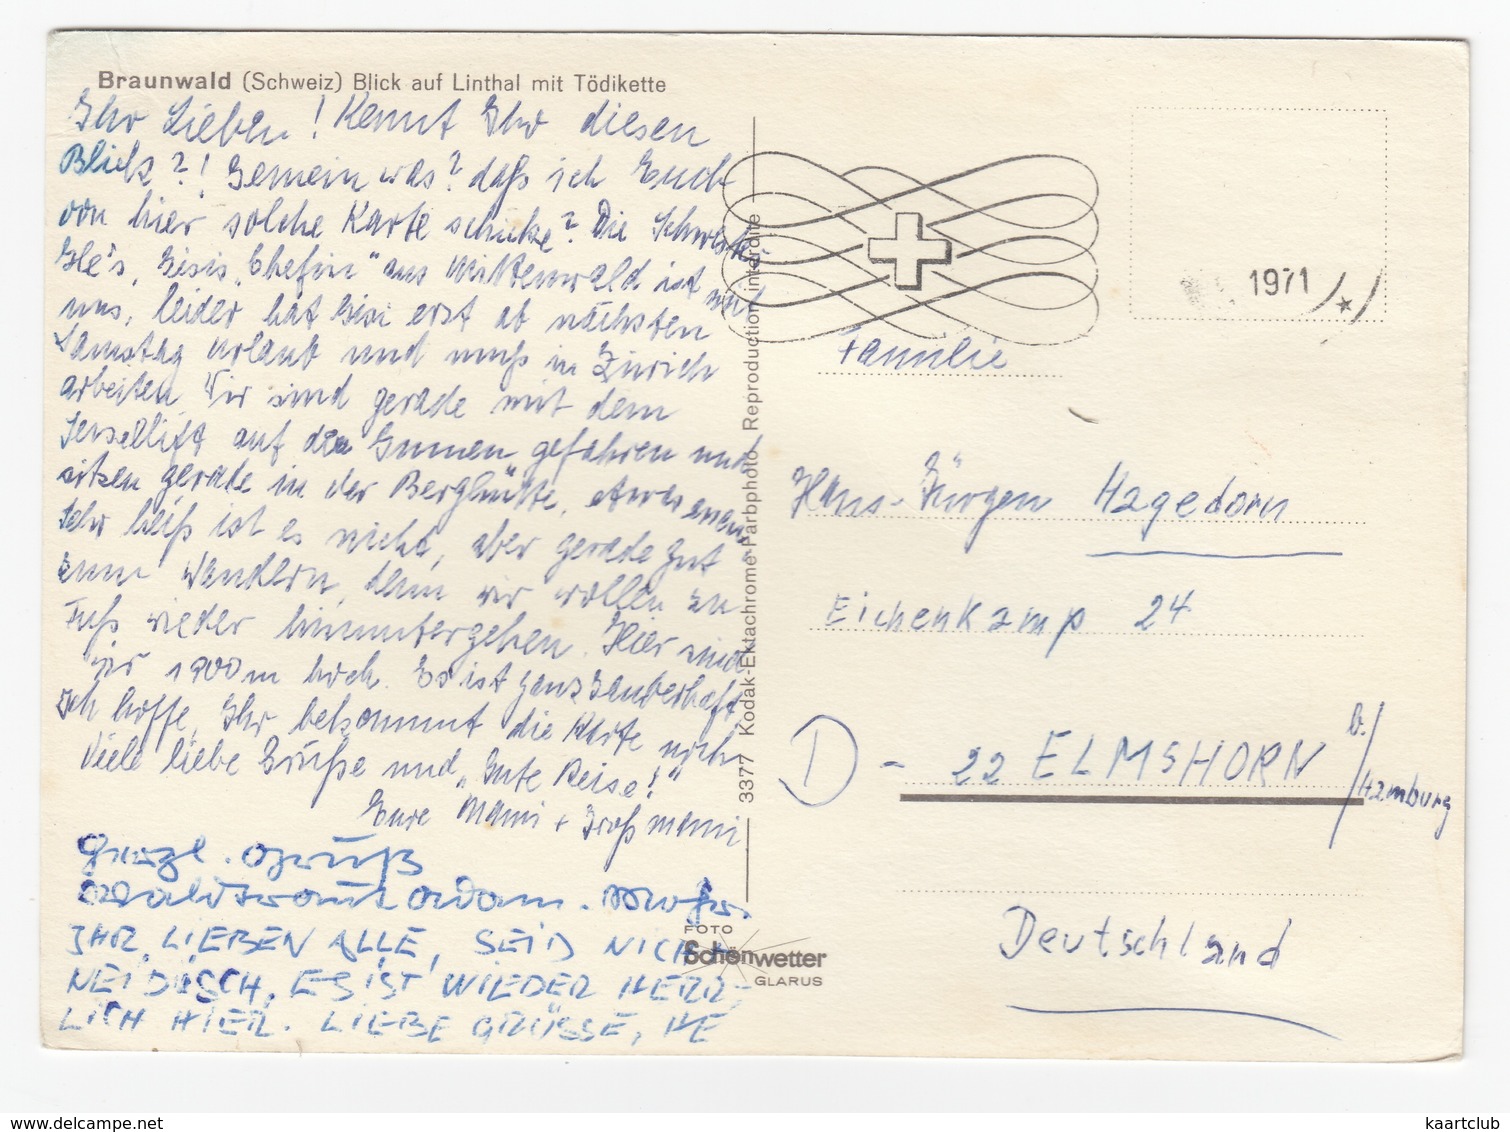 Braunwald (Schweiz) Blick auf Linthal mit Tödikette
Ihr Lieben! Kennt Ihr diesen
Blick?! Gemein was? daß ich Euch
von hier solche Karte schicke? Die Schwester
Gisis „Chefin" aus Mittenwald ist mit
uns, leider hat Gisi erst ab nächsten
Samstag Urlaub und muß in Zürich
arbeiten Wir sind gerade mit dem
Sessellift auf den Gumen gefahren und
sitzen gerade in der Berghütte, etwas essen
Sehr heiß ist es nicht, aber gerade gut
zum Wandern, denn wir wollen zu
Fuß wieder hinuntergehen. Hier sind
wir 1900m hoch. Es ist ganz zauberhaft
Ich hoffe, Ihr bekommt die Karte noch
Viele liebe Grüße und „Gute Reise!"
Eure Mami + Großmami
Herzl. Gruß
Waltraut Adam.
IHR LIEBEN ALLE, SEID NICHT
NEIDISCH, ES IST WIEDER HERR-
LICH HIER. LIEBE GRÜSSE, HE
3377 Kodak-Ektachrome-Farbphoto Reproduction interdite
FOTO
Schönwetter
GLARUS
1971
Familie
Hans-Jürgen Hagedorn
Eichenkamp 24
D - 22 ELMSHORN b./Hamburg
Deutschland
kaartclub
www.delcampe.net